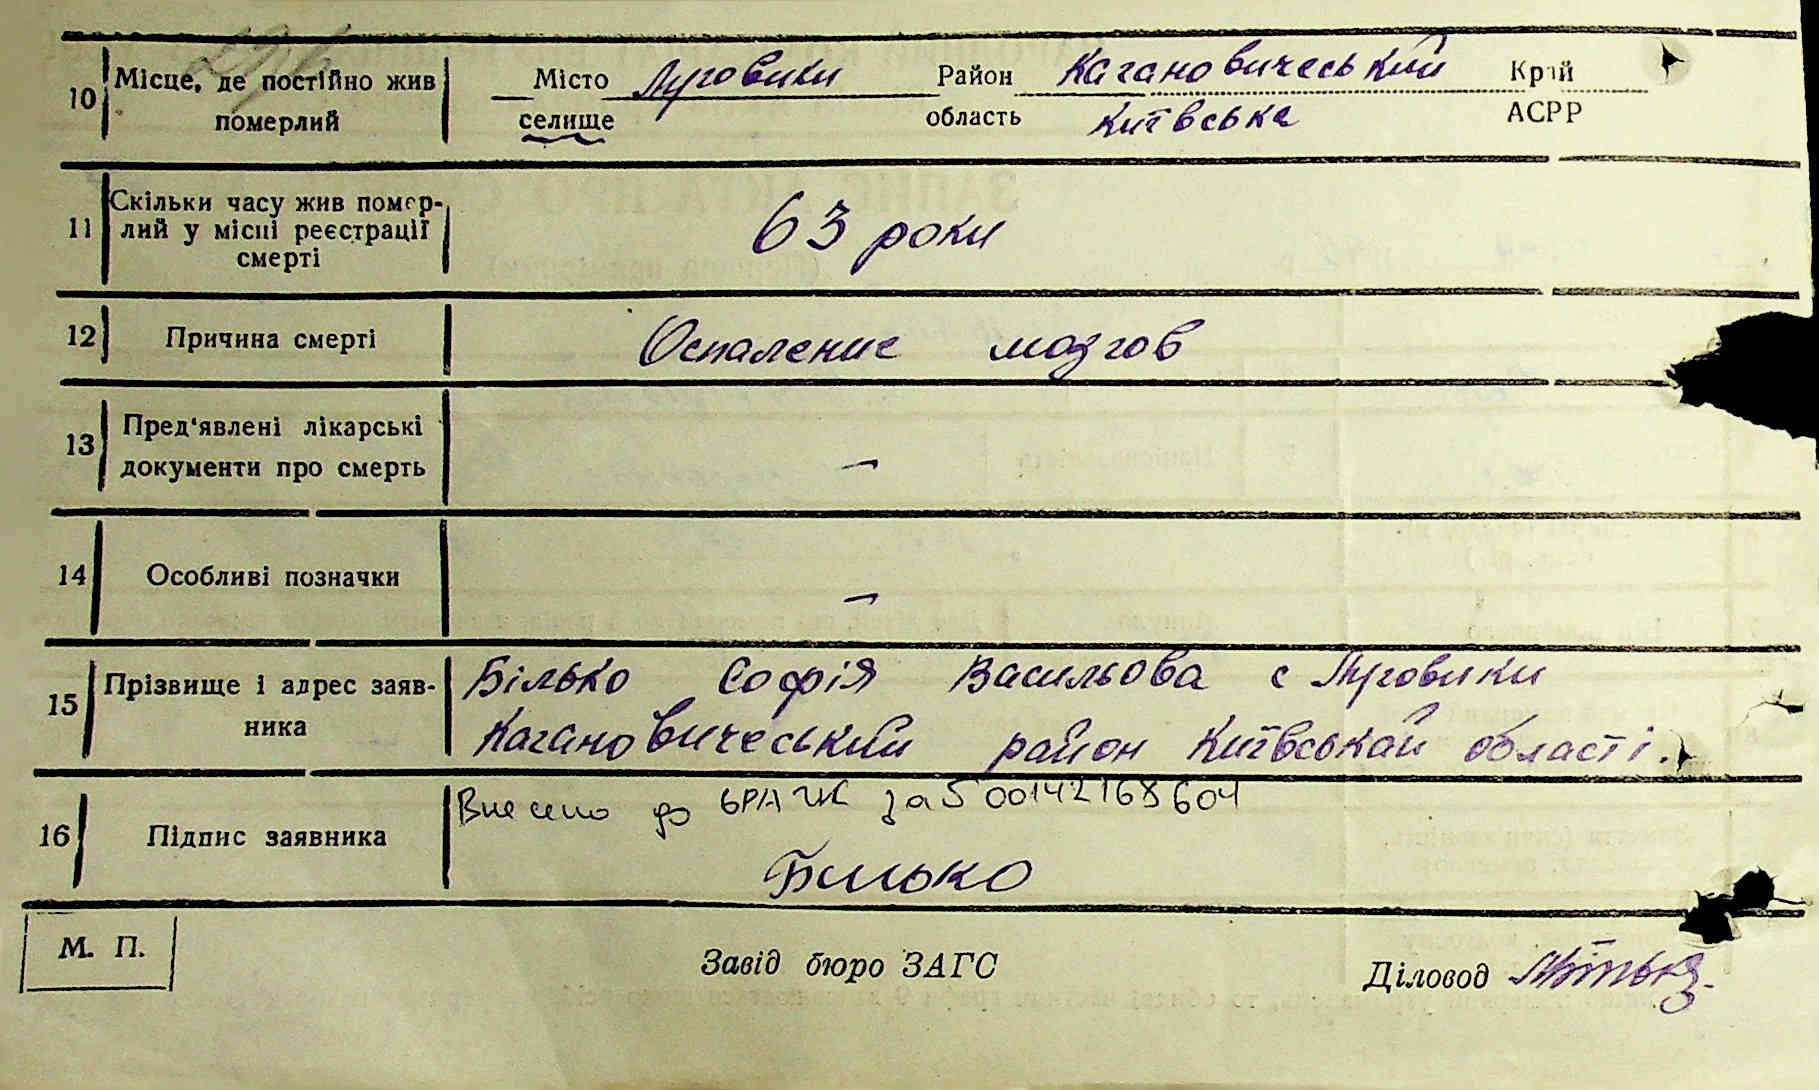 10 Місце, де постійно жив померлий
Місто Луговики Район Кагановичеський Край
селище область Київська АСРР
11 Скільки часу жив помер-
лий у місці реєстрації
смерті
63 роки
12 Причина смерті Оспаление мозгов
13 Пред'явлені лікарські
документи про смерть
—
14 Особливі позначки —
15 Прізвище і адрес заяв-
ника
Білько Софія Васильова с Луговики
Кагановичеський район Київськай області.
16 Підпис заявника
Внесено до за 500142168604
Билько
М. П.
Завід бюро ЗАГС Діловод